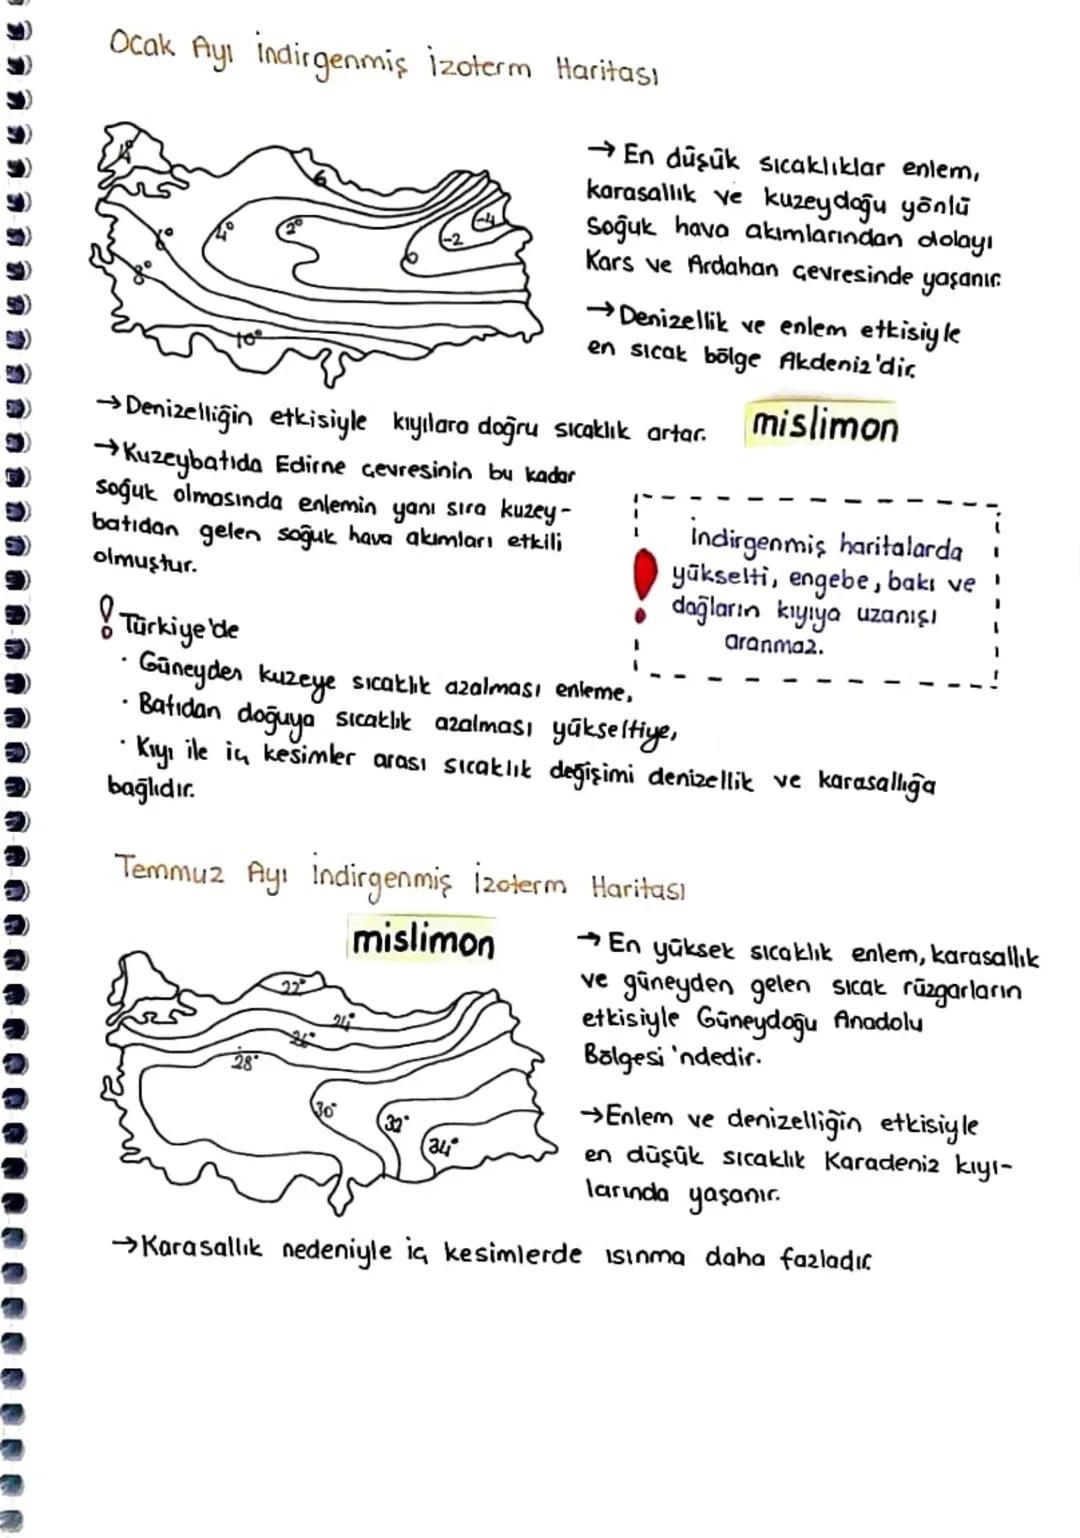 Ocak Ayı İndirgenmiş İzoterm Haritası
→ En düşük sıcaklıklar enlem,
karasallık ve kuzeydoğu yönlü
soğuk hava akımlarından dolayı
Kars ve Ardahan çevresinde yaşanır.
→ Denizellik ve enlem etkisiyle
en sıcak bölge Akdeniz'dir.
4°
6
6°
4°
2°
-4
-2
0
8°
10°
→ Denizelliğin etkisiyle kıyılara doğru sıcaklık artar.
mislimon
→ Kuzeybatıda Edirne çevresinin bu kadar
soğuk olmasında enlemin yanı sıra kuzey-
batıdan gelen soğuk hava akımları etkili
olmuştur.
! İndirgenmiş haritalarda
yükselti, engebe, bakı ve
dağların kıyıya uzanışı
aranmaz.
! Türkiye'de
· Güneyden kuzeye sıcaklık azalması enleme,
· Batıdan doğuya sıcaklık azalması yükseltiye,
· Kıyı ile iç kesimler arası sıcaklık değişimi denizellik ve karasallığa
bağlıdır.
Temmuz Ayı İndirgenmiş İzoterm Haritası
mislimon
→ En yüksek sıcaklık enlem, karasallık
ve güneyden gelen sıcak rüzgarların
etkisiyle Güneydoğu Anadolu
Bölgesi'ndedir.
→ Enlem ve denizelliğin etkisiyle
en düşük sıcaklık Karadeniz kıyı-
larında yaşanır.
22°
24°
26°
28°
30°
32°
34°
→ Karasallık nedeniyle iç kesimlerde ısınma daha fazladır.